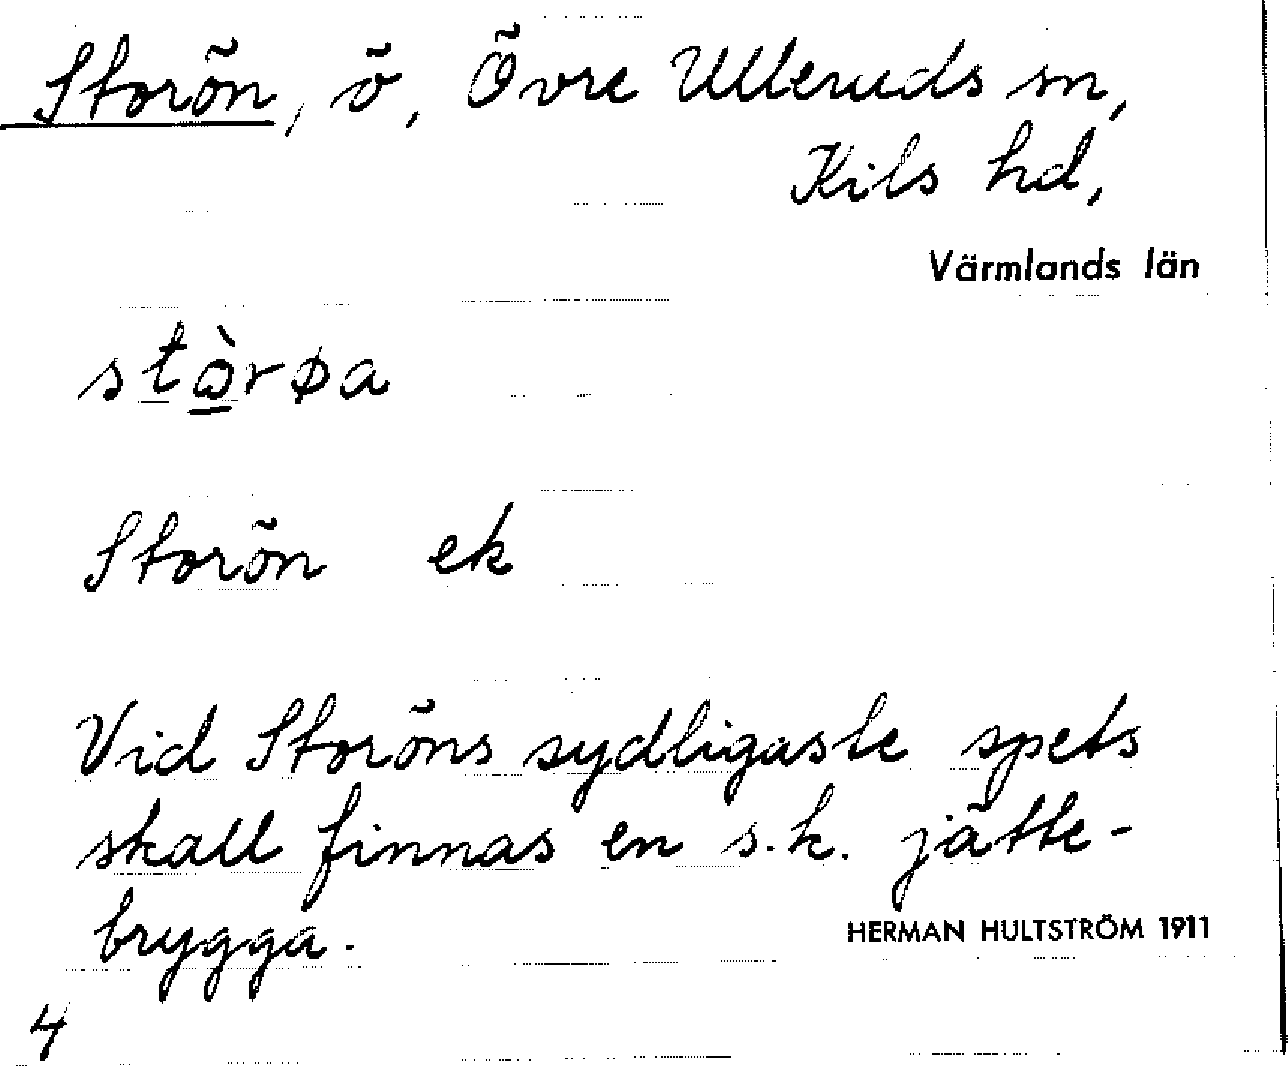 Storön, ö, Övre Ulleruds sn,
Kils hd,
Värmlands län
stòrøa
Storön ek
Vid Storöns sydligaste spets
skall finnas en s.k. jätte-
brygga.
HERMAN HULTSTRÖM 1911
4